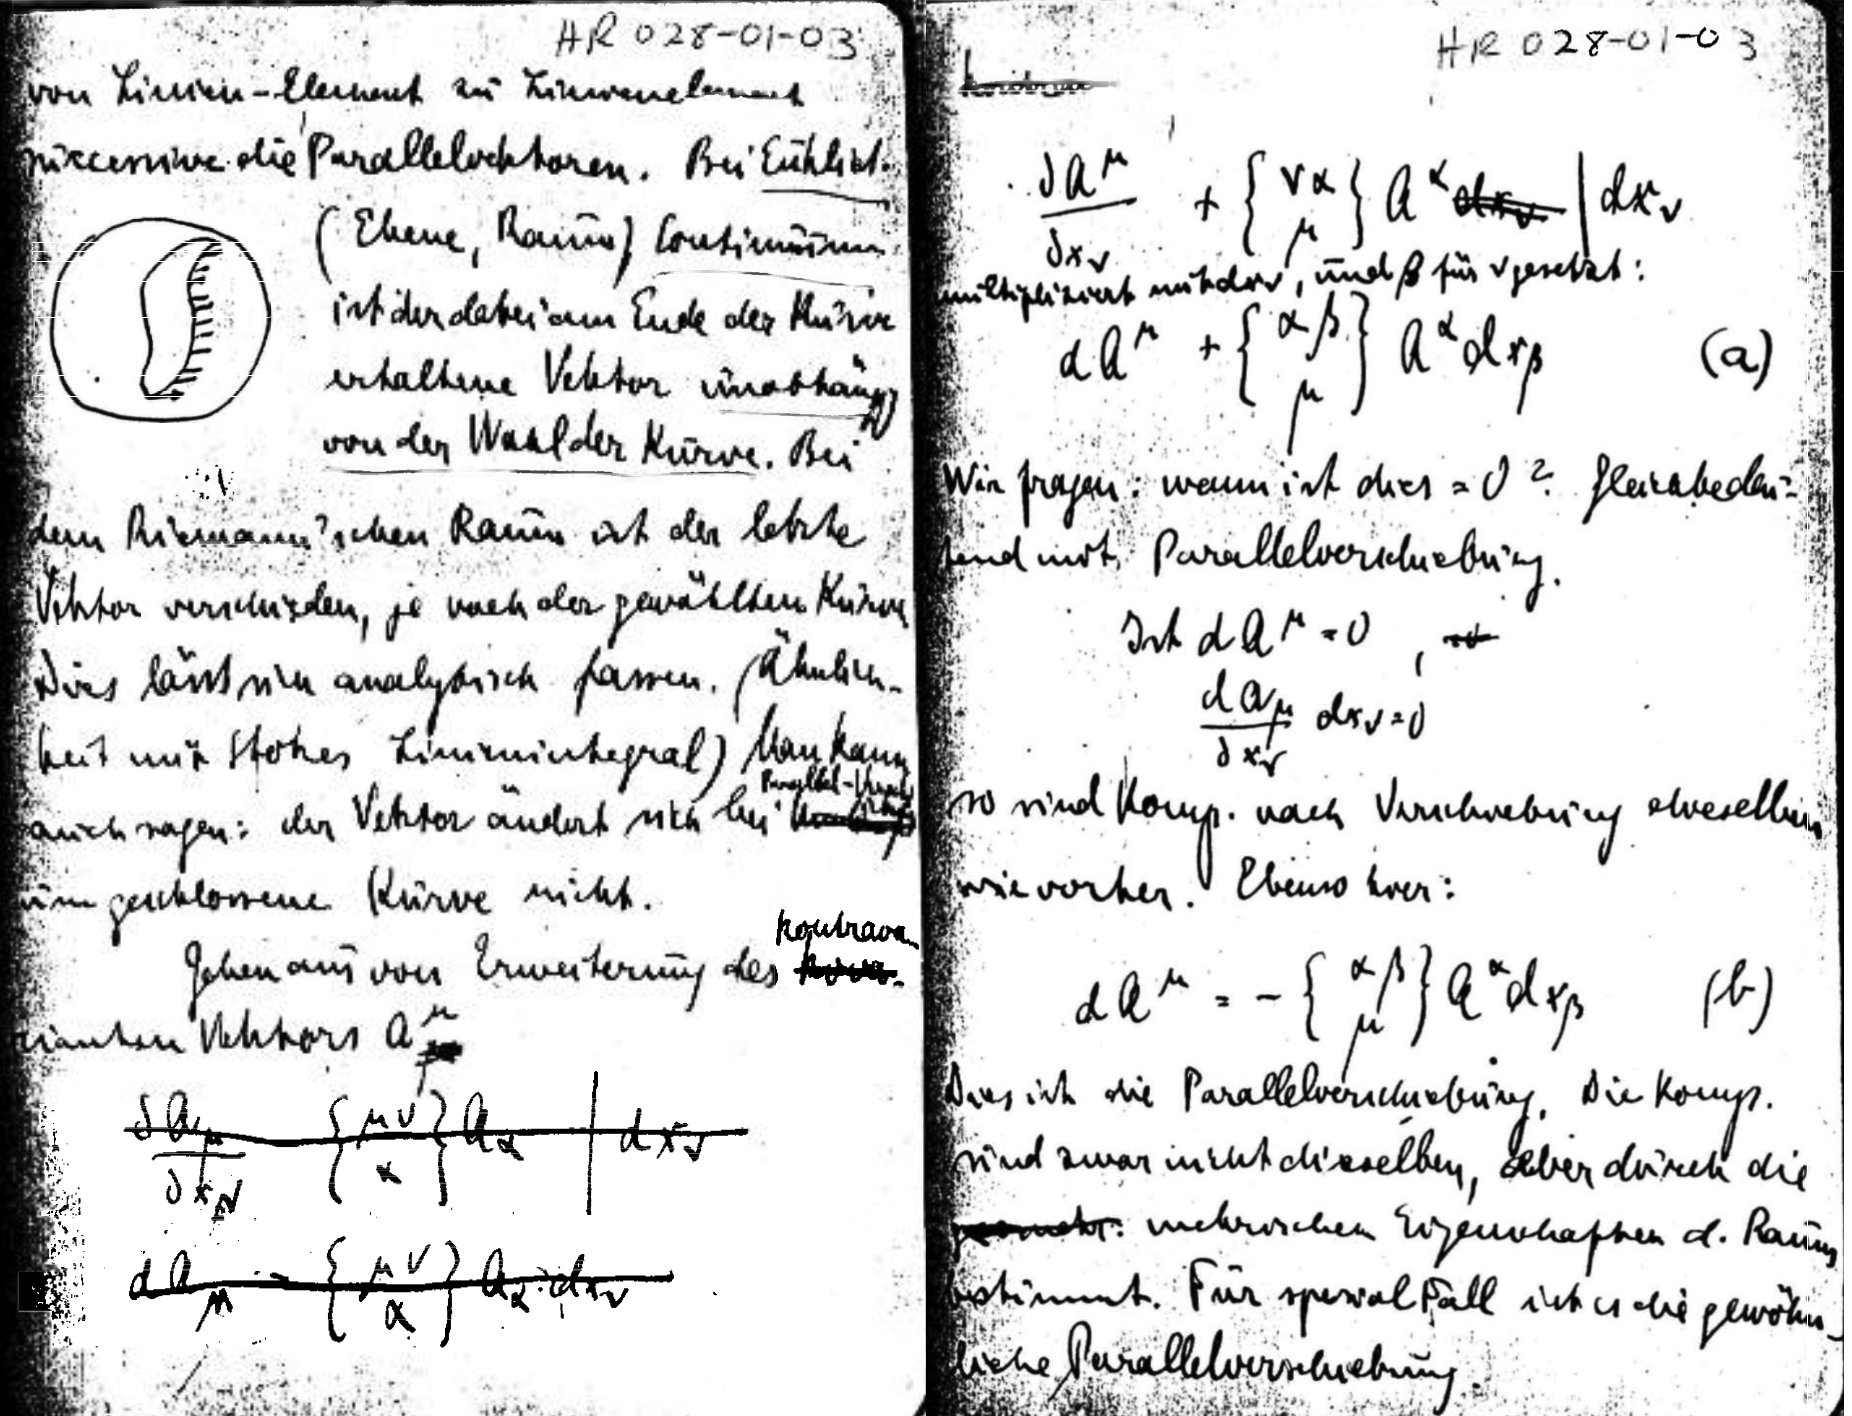 HR 028-01-03
von Linien-Element zu Linienelement
successive die Parallelvektoren. Bei Euklid.
(Ebene, Raum) Continuum
ist der dabei am Ende der Kurve
erhaltene Vektor unabhängig
von der Wahl der Kurve. Bei
dem Riemann'schen Raum ist der letzte
Vektor verschieden, je nach der gewählten Kurve
Dies lässt sich analytisch fassen. (Ähnlich-
keit mit Stokes Linienintegral) Man kann
Parallel-
auch sagen: der Vektor ändert sich bei
um geschlossene Kurve nicht.
kontrava-
Gehen aus von Erweiterung des
rianten Vektors A^μ
∂A_μ/∂x_ν {μν α} A_α | dx_ν
dA_μ - {μν α} A_α · dx_ν
HR 028-01-03
∂A^μ/∂x_ν + {να μ} A^α dx_ν | dx_ν
multipliziert mit dxν, und β für ν gesetzt:
dA^μ + {αβ μ} A^α dx_β (a)
Wir fragen: wann ist dies = 0? Gleichbedeu-
tend mit Parallelverschiebung.
Ist dA^μ = 0,
dA_μ/∂x_ν dx_ν = 0
so sind Komp. nach Verschiebung dieselben
wie vorher. Ebenso hier:
dA^μ = - {αβ μ} A^α dx_β (b)
Dies ist die Parallelverschiebung. Die Komp.
sind zwar nicht dieselben, aber durch die
geometr. metrischen Eigenschaften d. Raums
bestimmt. Für spezial Fall ist es die gewöhn-
liche Parallelverschiebung.